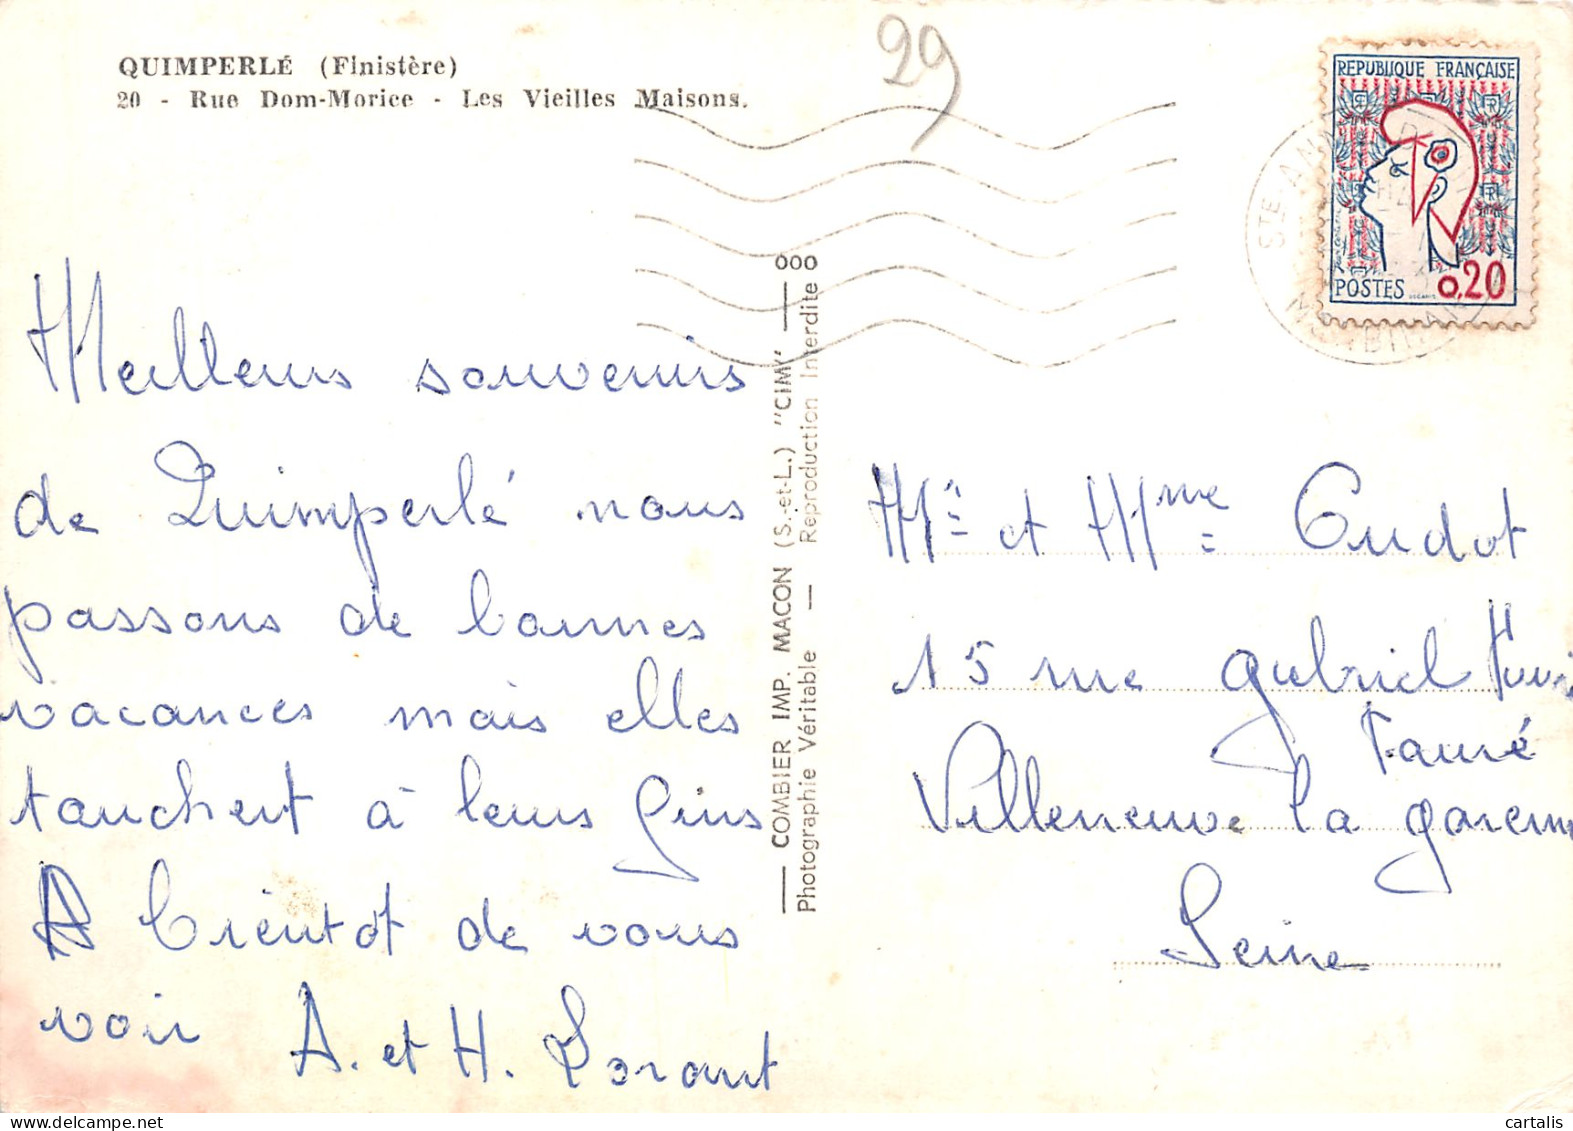 QUIMPERLÉ (Finistère)
20 - Rue Dom-Morice - Les Vieilles Maisons.
29
REPUBLIQUE FRANÇAISE
POSTES 0,20
STE ANNE D'
MORBIHAN
Meilleurs souvenirs
de Quimperlé nous
passons de bonnes
vacances mais elles
touchent à leurs fins
A bientôt de vous
voir A. et H. Lorant
COMBIER IMP. MACON (S.-et-L.) "CIM"
Photographie Véritable — Reproduction Interdite
Mr et Mme Oudot
15 rue gabriel
Fauré
Villeneuve la garenne
Seine
cartalis